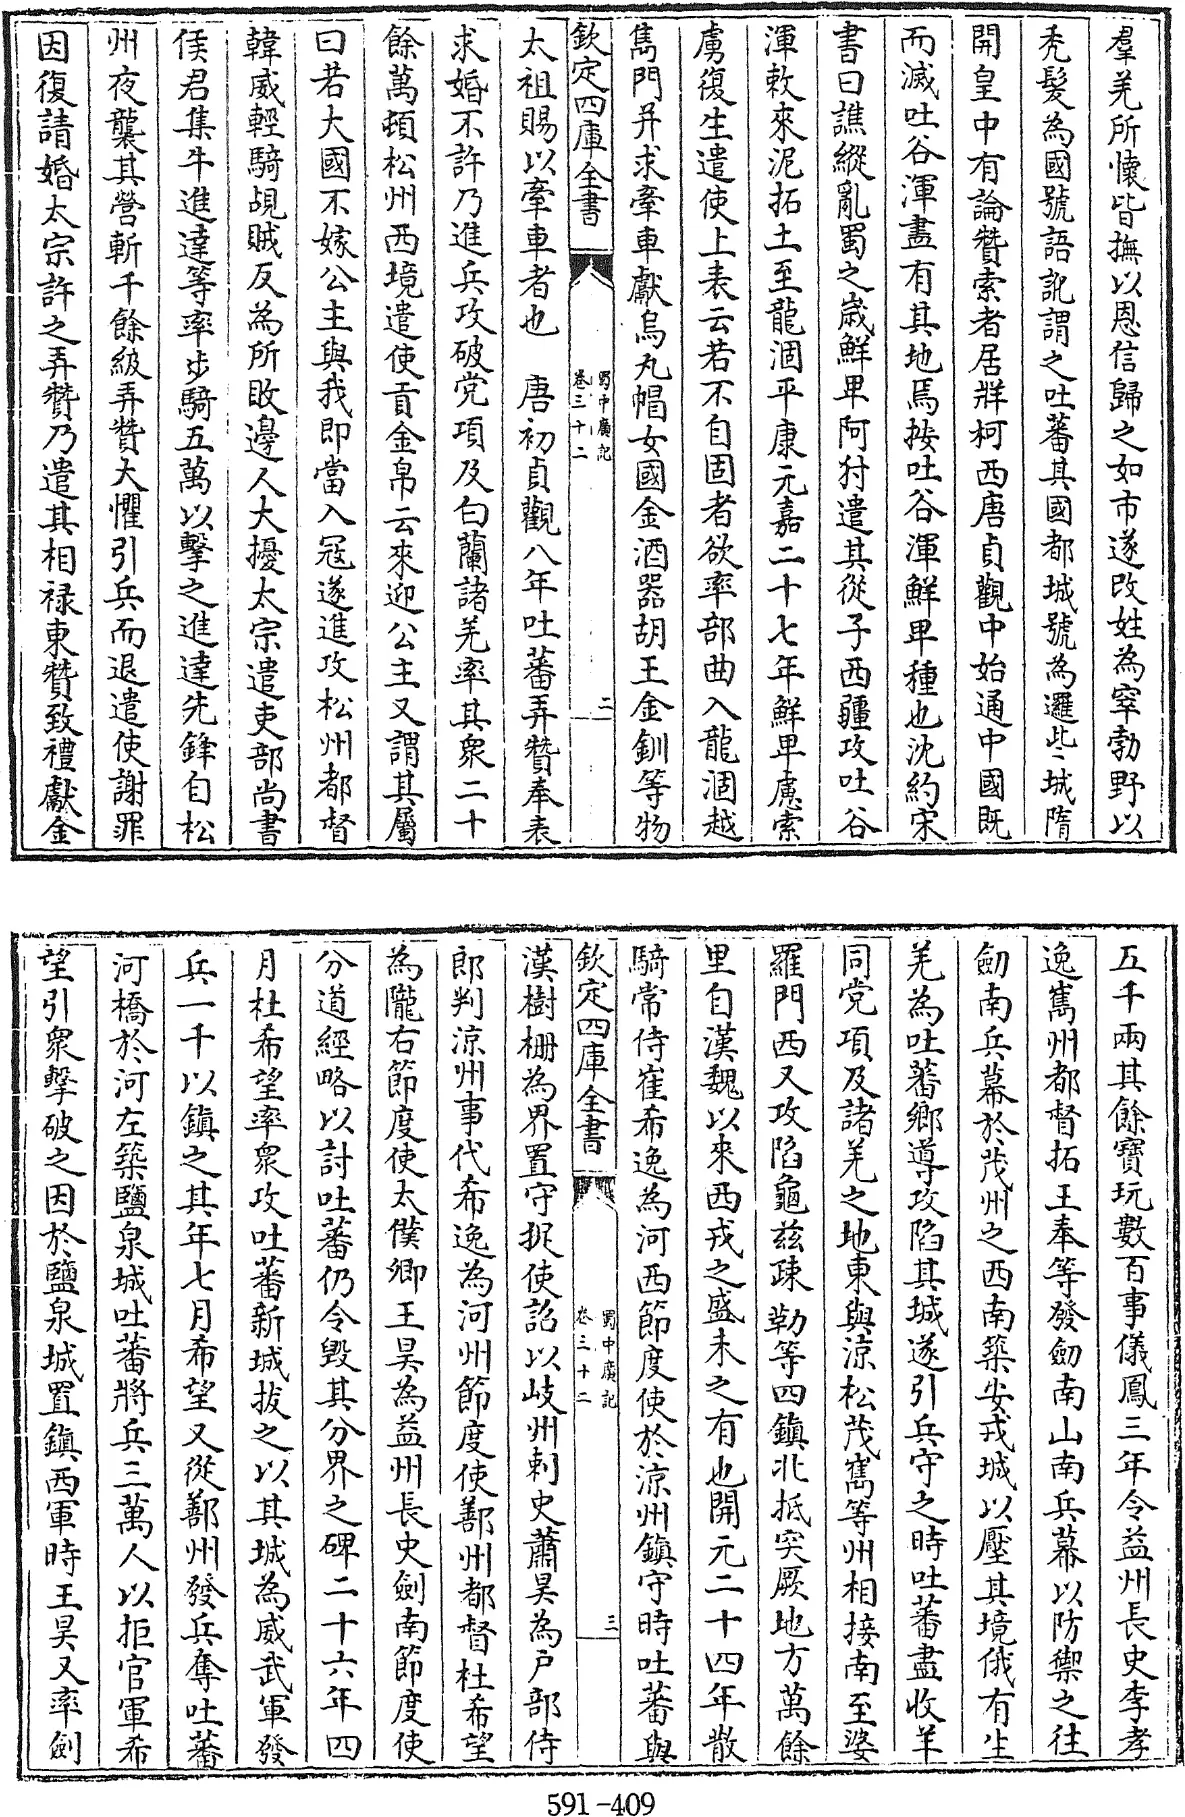 羣羌所懷皆撫以恩信歸之如市遂改姓為窣勃野以
禿髮為國號語訛謂之吐蕃其國都城號為邏些城隋
開皇中有論贊索者居牂柯西唐貞觀中始通中國既
而滅吐谷渾盡有其地焉按吐谷渾鮮卑種也沈約宋
書曰譙縱亂蜀之歲鮮卑阿犲遣其從子西疆攻吐谷
渾敕來泥拓土至龍涸平康元嘉二十七年鮮卑慮索
虜復生遣使上表云若不自固者欲率部曲入龍涸越
雋門并求牽車獻烏丸帽女國金酒器胡王金釧等物
欽定四庫全書
蜀中廣記
卷三十二
二
太祖賜以牽車者也 唐初貞觀八年吐蕃弄贊奉表
求婚不許乃進兵攻破党項及白蘭諸羌率其衆二十
餘萬頓松州西境遣使貢金帛云來迎公主又謂其屬
曰若大國不嫁公主與我即當入冦遂進攻松州都督
韓威輕騎覘賊反為所敗邊人大擾太宗遣吏部尚書
侯君集牛進達等率步騎五萬以擊之進達先鋒自松
州夜襲其營斬千餘級弄贊大懼引兵而退遣使謝罪
因復請婚太宗許之弄贊乃遣其相禄東贊致禮獻金
五千兩其餘寶玩數百事儀鳳三年令益州長史李孝
逸雋州都督拓王奉等發劒南山南兵募以防禦之往
劒南兵募於茂州之西南築安戎城以壓其境俄有生
羌為吐蕃鄉導攻陷其城遂引兵守之時吐蕃盡收羊
同党項及諸羌之地東與涼松茂雋等州相接南至婆
羅門西又攻陷龜茲疎勒等四鎮北抵突厥地方萬餘
里自漢魏以來西戎之盛未之有也開元二十四年散
騎常侍崔希逸為河西節度使於涼州鎮守時吐蕃與
欽定四庫全書
蜀中廣記
卷三十二
三
漢樹柵為界置守捉使詔以岐州刺史蕭炅為戶部侍
郎判涼州事代希逸為河州節度使鄯州都督杜希望
為隴右節度使太僕卿王昊為益州長史劍南節度使
分道經略以討吐蕃仍令毁其分界之碑二十六年四
月杜希望率衆攻吐蕃新城拔之以其城為威武軍發
兵一千以鎮之其年七月希望又從鄯州發兵奪吐蕃
河橋於河左築鹽泉城吐蕃將兵三萬人以拒官軍希
望引衆擊破之因於鹽泉城置鎮西軍時王昊又率劍
591-409